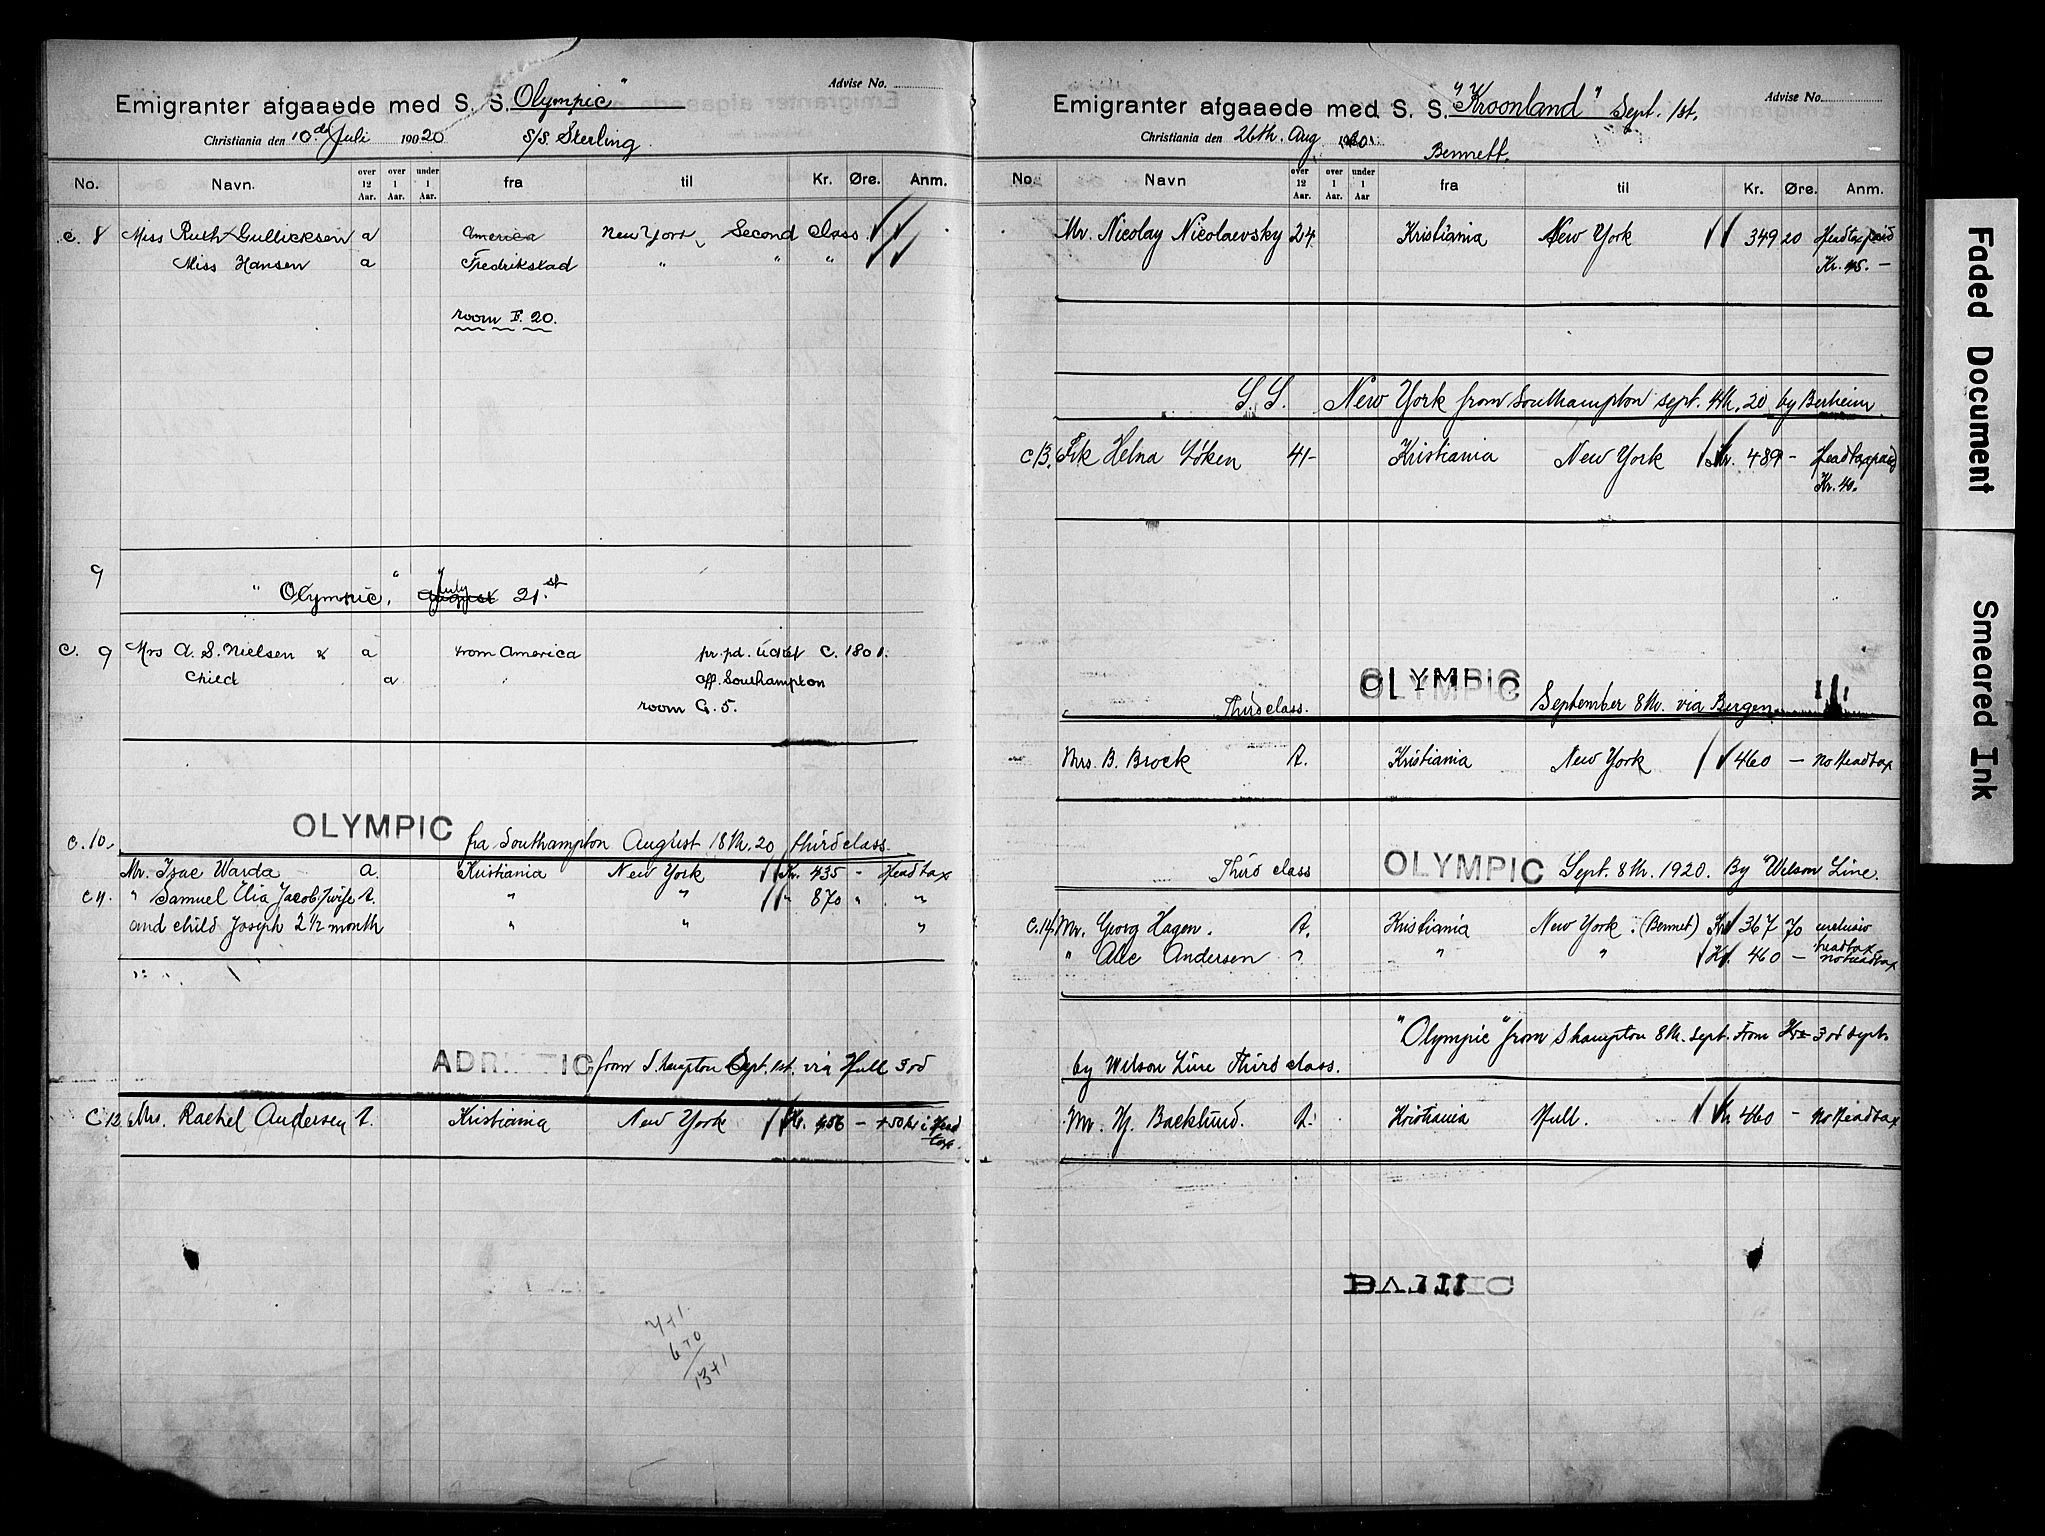 Advise No.
Emigranter afgaaede med S. S. "Olympic"
Christiania den 10de Juli 190020 S/S. Sterling
No. Navn. over 12 Aar. over 1 Aar. under 1 Aar. fra til Kr. Øre. Anm.
c. 8 Miss Ruth Gullicksen a America New York, Second Class.
Miss Hansen a Fredrikstad " " "
room F. 20.
9
"Olympic", August July 21.st
c. 9 Mrs A. S. Nielsen & a from America pr. pd. ticket C. 1801.
Child a " off. Southampton
room G. 5.
c. 10. OLYMPIC fra Southampton August 18th, 20 third class.
Mr. Isac Warda a. Kristiania New York Kr. 435 - Headtax
c 11. " Samuel Elia Jacob, wife A. " " " 870 " "
and child Joseph 2 1/2 month " " "
ADRIATIC from S'hampton Sept. 1st. via Hull 3rd
C 12 Mrs. Rachel Andersen A. Kristiania New York Kr. 456 - +50 kr i Head tax.
741
670
1341
Advise No.
Emigranter afgaaede med S. S. "Kroonland" Sept. 1st.
Christiania den 26th. Aug 1920 Bennett.
No. Navn over 12 Aar. over 1 Aar. under 1 Aar fra til Kr. Øre. Anm.
Mr. Nicolay Nicolaevsky 24 Kristiania New York 349 20 Headtax paid
Kr. 45. -
S. S. New York from Southampton sept. 4th, 20 by Berheim.
c 13. Frk Helna Løken 41- Kristiania New York Kr. 489 - Headtax paid
Kr. 40.
OLYMPIC
Third class. September 8th. via Bergen
Mrs. B. Brock A. Kristiania New York 460 - no Headtax
Third class OLYMPIC Sept. 8th. 1920. By Wilson Line.
c. 14 Mr. Georg Hagen. A. Kristiania New York. (Bennet) Kr 367 70 inclusiv headtax
" Alle Andersen " " " Kr. 460 - no headtax
"Olympic" from S'hampton 8th. Sept. From Kra 3rd sept.
by Wilson Line Third class.
Mr. Hj. Backlund. A. Kristiania Hull. Kr 460 - No Headtax
BALTIC
Faded Document
Smeared Ink